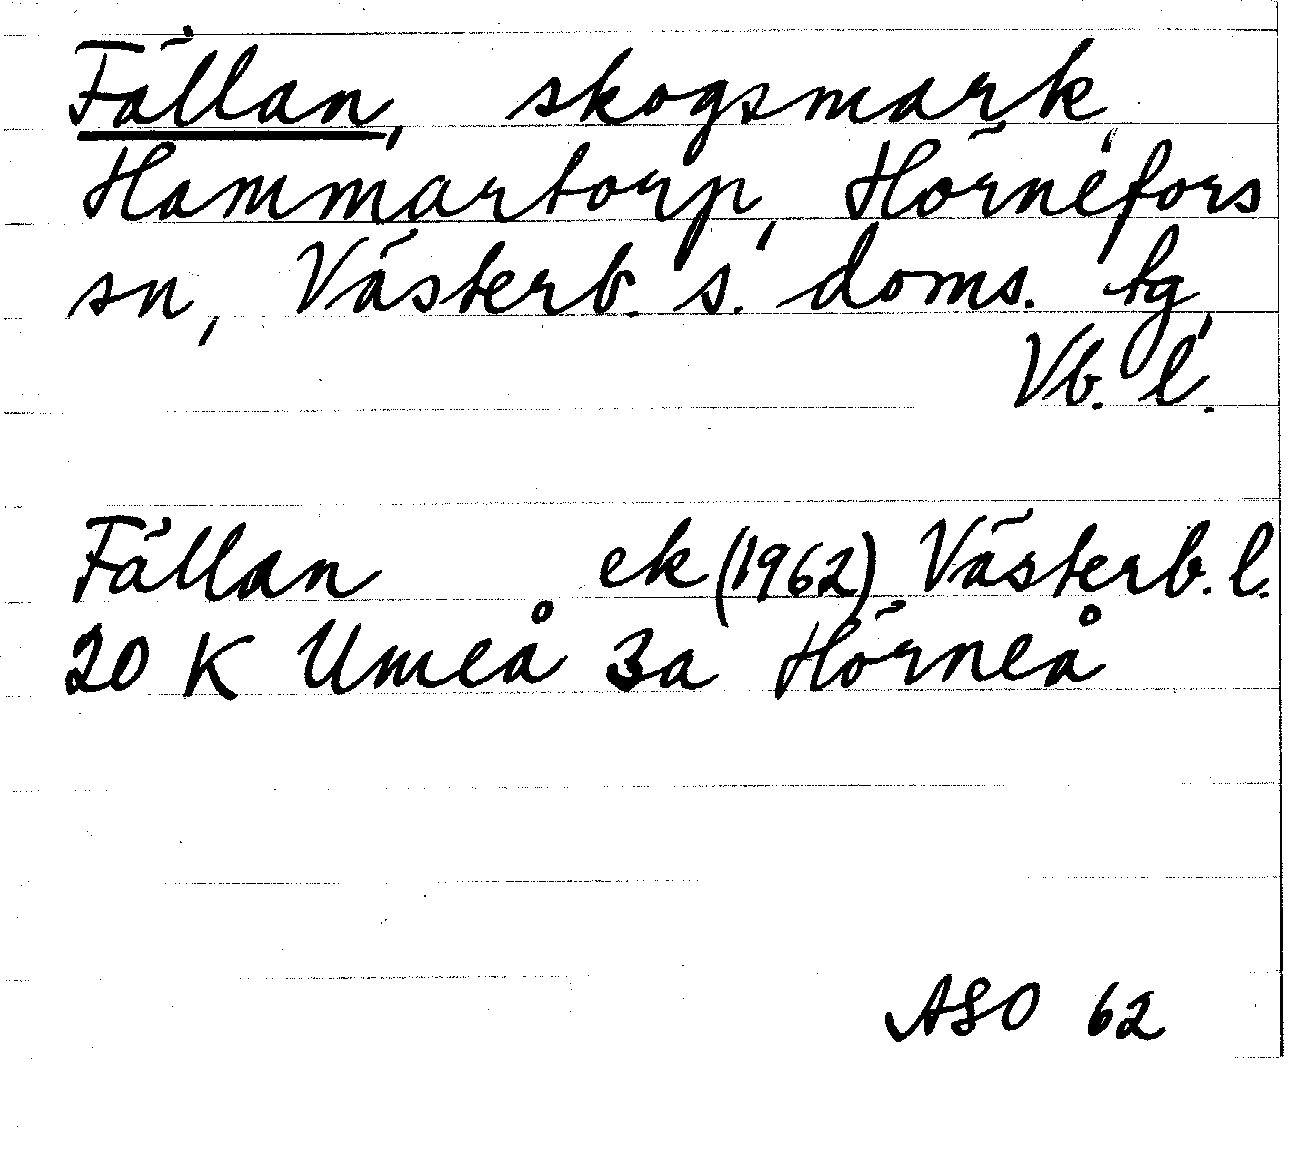 Fällan, skogsmark,
Hammartorp, Hörnefors
sn, Västerb. s. doms. tg,
Vb. l.
Fällan ek (1962) Västerb. l.
20 K Umeå 3a Hörneå
ASO 62